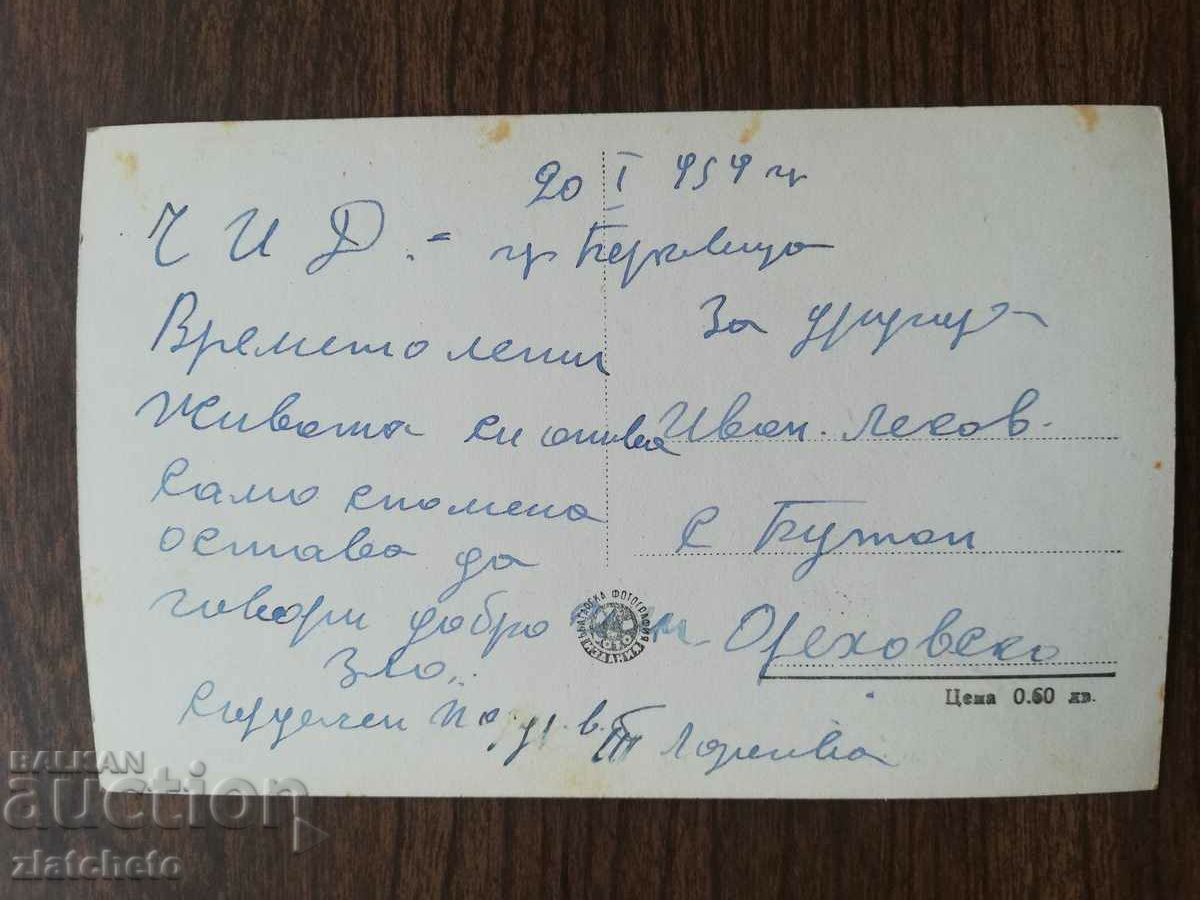 20 I 959 гр
Ч И Д. - гр Берковица
Времето лети
живота си отива
само спомена
остава да
говори добро или
зло..
сърдечен
За другаря
Иван Лесов.
с Бутан
Ореховско
БЪЛГАРСКА ФОТОГРАФИЯ
Цена 0.60 лв.
BALKAN
auction
zlatcheto